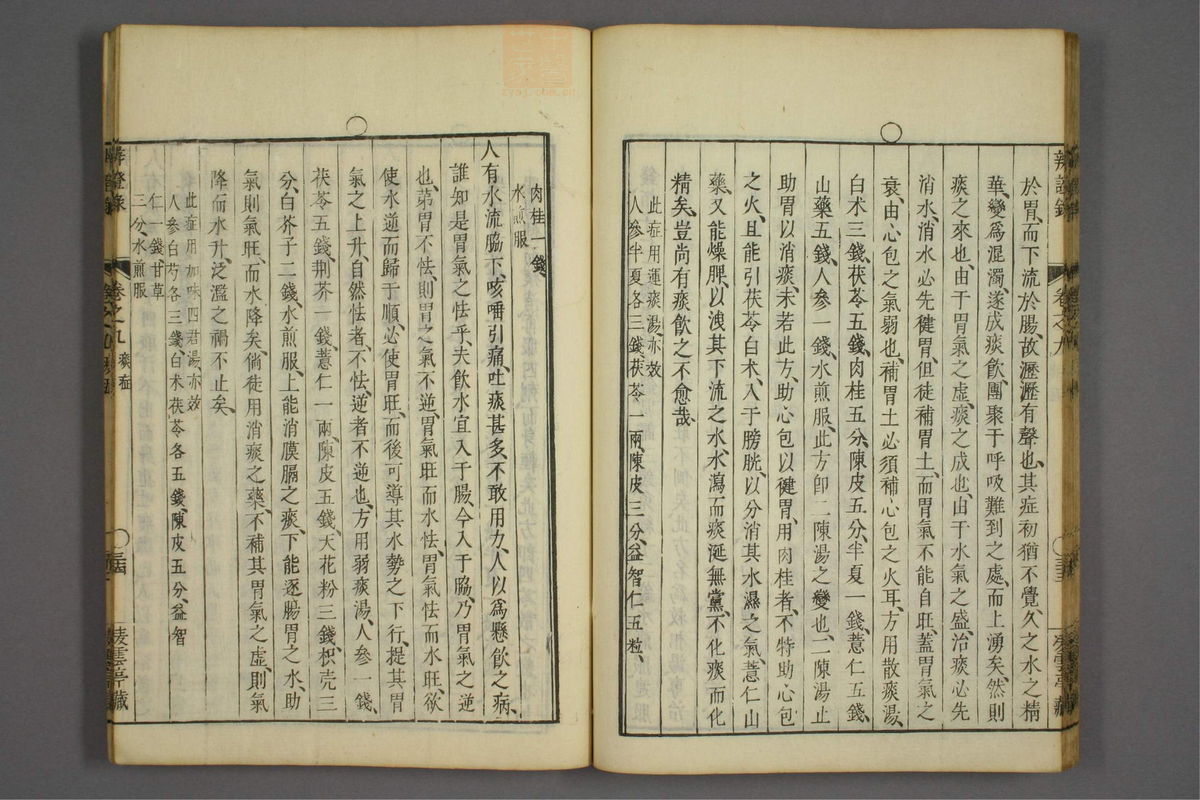 於胃、而下流於腸、故瀝瀝有聲也、其症初猶不覺、久之水之精
華、變爲混濁、遂成痰飲、團聚于呼吸難到之處、而上湧矣、然則
痰之來也、由于胃氣之虛、痰之成也、由于水氣之盛、治痰必先
消水、消水必先健胃、但徒補胃土、而胃氣不能自旺、蓋胃氣之
衰、由心包之氣弱也、補胃土必須補心包之火耳、方用散痰湯、
白朮三錢、茯苓五錢、肉桂五分、陳皮五分、半夏一錢、薏仁五錢、
山藥五錢、人參一錢、水煎服、此方卽二陳湯之變也、二陳湯止
助胃以消痰、未若此方、助心包以健胃、用肉桂者、不特助心包
之火、且能引茯苓白朮、入于膀胱、以分消其水濕之氣、薏仁山
藥、又能燥脾、以洩其下流之水、水瀉而痰涎無黨、不化痰而化
精矣、豈尚有痰飲之不愈哉
此症用運痰湯亦效
人參半夏各三錢茯苓一兩、陳皮三分、益智仁五粒、
肉桂一錢
水煎服
人有水流脇下、咳嗽引痛、吐痰甚多、不敢用力、人以爲懸飲之病、
誰知是胃氣之怯乎、夫飲水宜入于腸、今入于脇、乃胃氣之逆
也、第胃不怯、則胃之氣不逆、胃氣旺而水怯、胃氣怯而水旺、欲
使水逆而歸于順、必使胃旺、而後可導其水勢之下行、提其胃
氣之上升、自然怯者不怯、逆者不逆也、方用弱痰湯、人參一錢、
茯苓五錢、荆芥一錢、薏仁一兩、陳皮五錢、天花粉三錢、枳壳三
分、白芥子二錢、水煎服、上能消膜膈之痰、下能逐腸胃之水、助
氣則氣旺、而水降矣、倘徒用消痰之藥、不補其胃氣之虛、則氣
降而水升、泛濫之禍不止矣、
此症用加味四君湯亦效
人參白芍各三錢白朮茯苓各五錢、陳皮五分、益智
仁一錢、甘草
三分、水煎服
辨證錄 卷之九 痰症